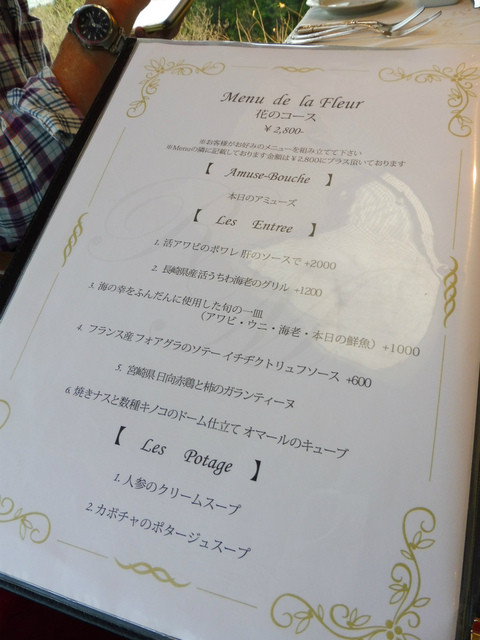 Menu de la Fleur
花のコース
¥ 2,800-
※お客様がお好みのメニューを組み立てて下さい
※Menuの隣に記載しております金額は¥2,800にプラス頂いております
【 Amuse-Bouche 】
本日のアミューズ
【 Les Entree 】
1. 活アワビのポワレ 肝のソースで +2000
2. 長崎県産活うちわ海老のグリル +1200
3. 海の幸をふんだんに使用した旬の一皿
（アワビ・ウニ・海老・本日の鮮魚）+1000
4. フランス産フォアグラのソテー イチヂクトリュフソース +600
5. 宮崎県日向赤鶏と柿のガランティーヌ
6. 焼きナスと数種キノコのドーム仕立て オマールのキューブ
【 Les Potage 】
1. 人参のクリームスープ
2. カボチャのポタージュスープ